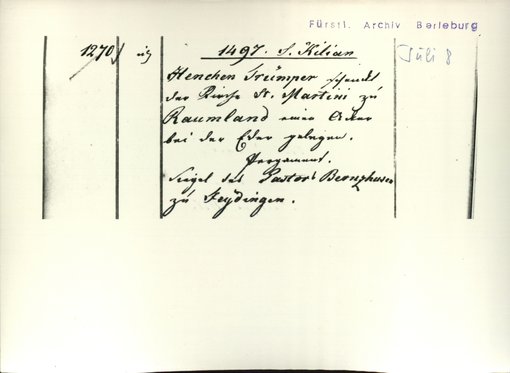 Fürstl. Archiv Berleburg
1270
1497. S. Kilian
Juli 8
Henchen Trümper schenkt
der Kirche St. Martini zu
Raumland einen Acker
bei der Eder gelegen.
Pergament.
Siegel des Pastors Bernzhusen
zu Feydingen.